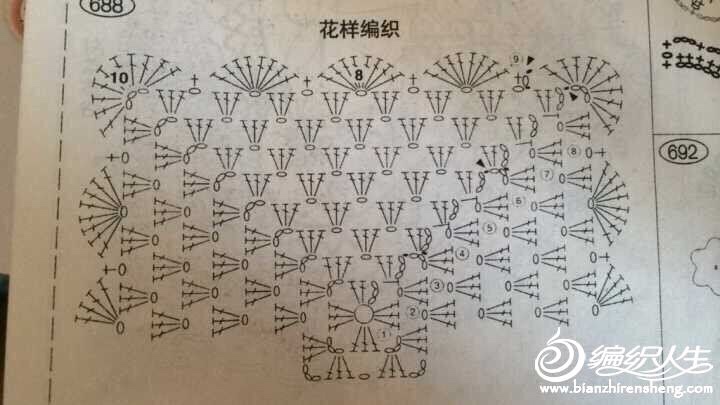 688
花样编织
10
8
9
8
7
6
5
4
3
2
1
692
编织人生
www.bianzhirensheng.com